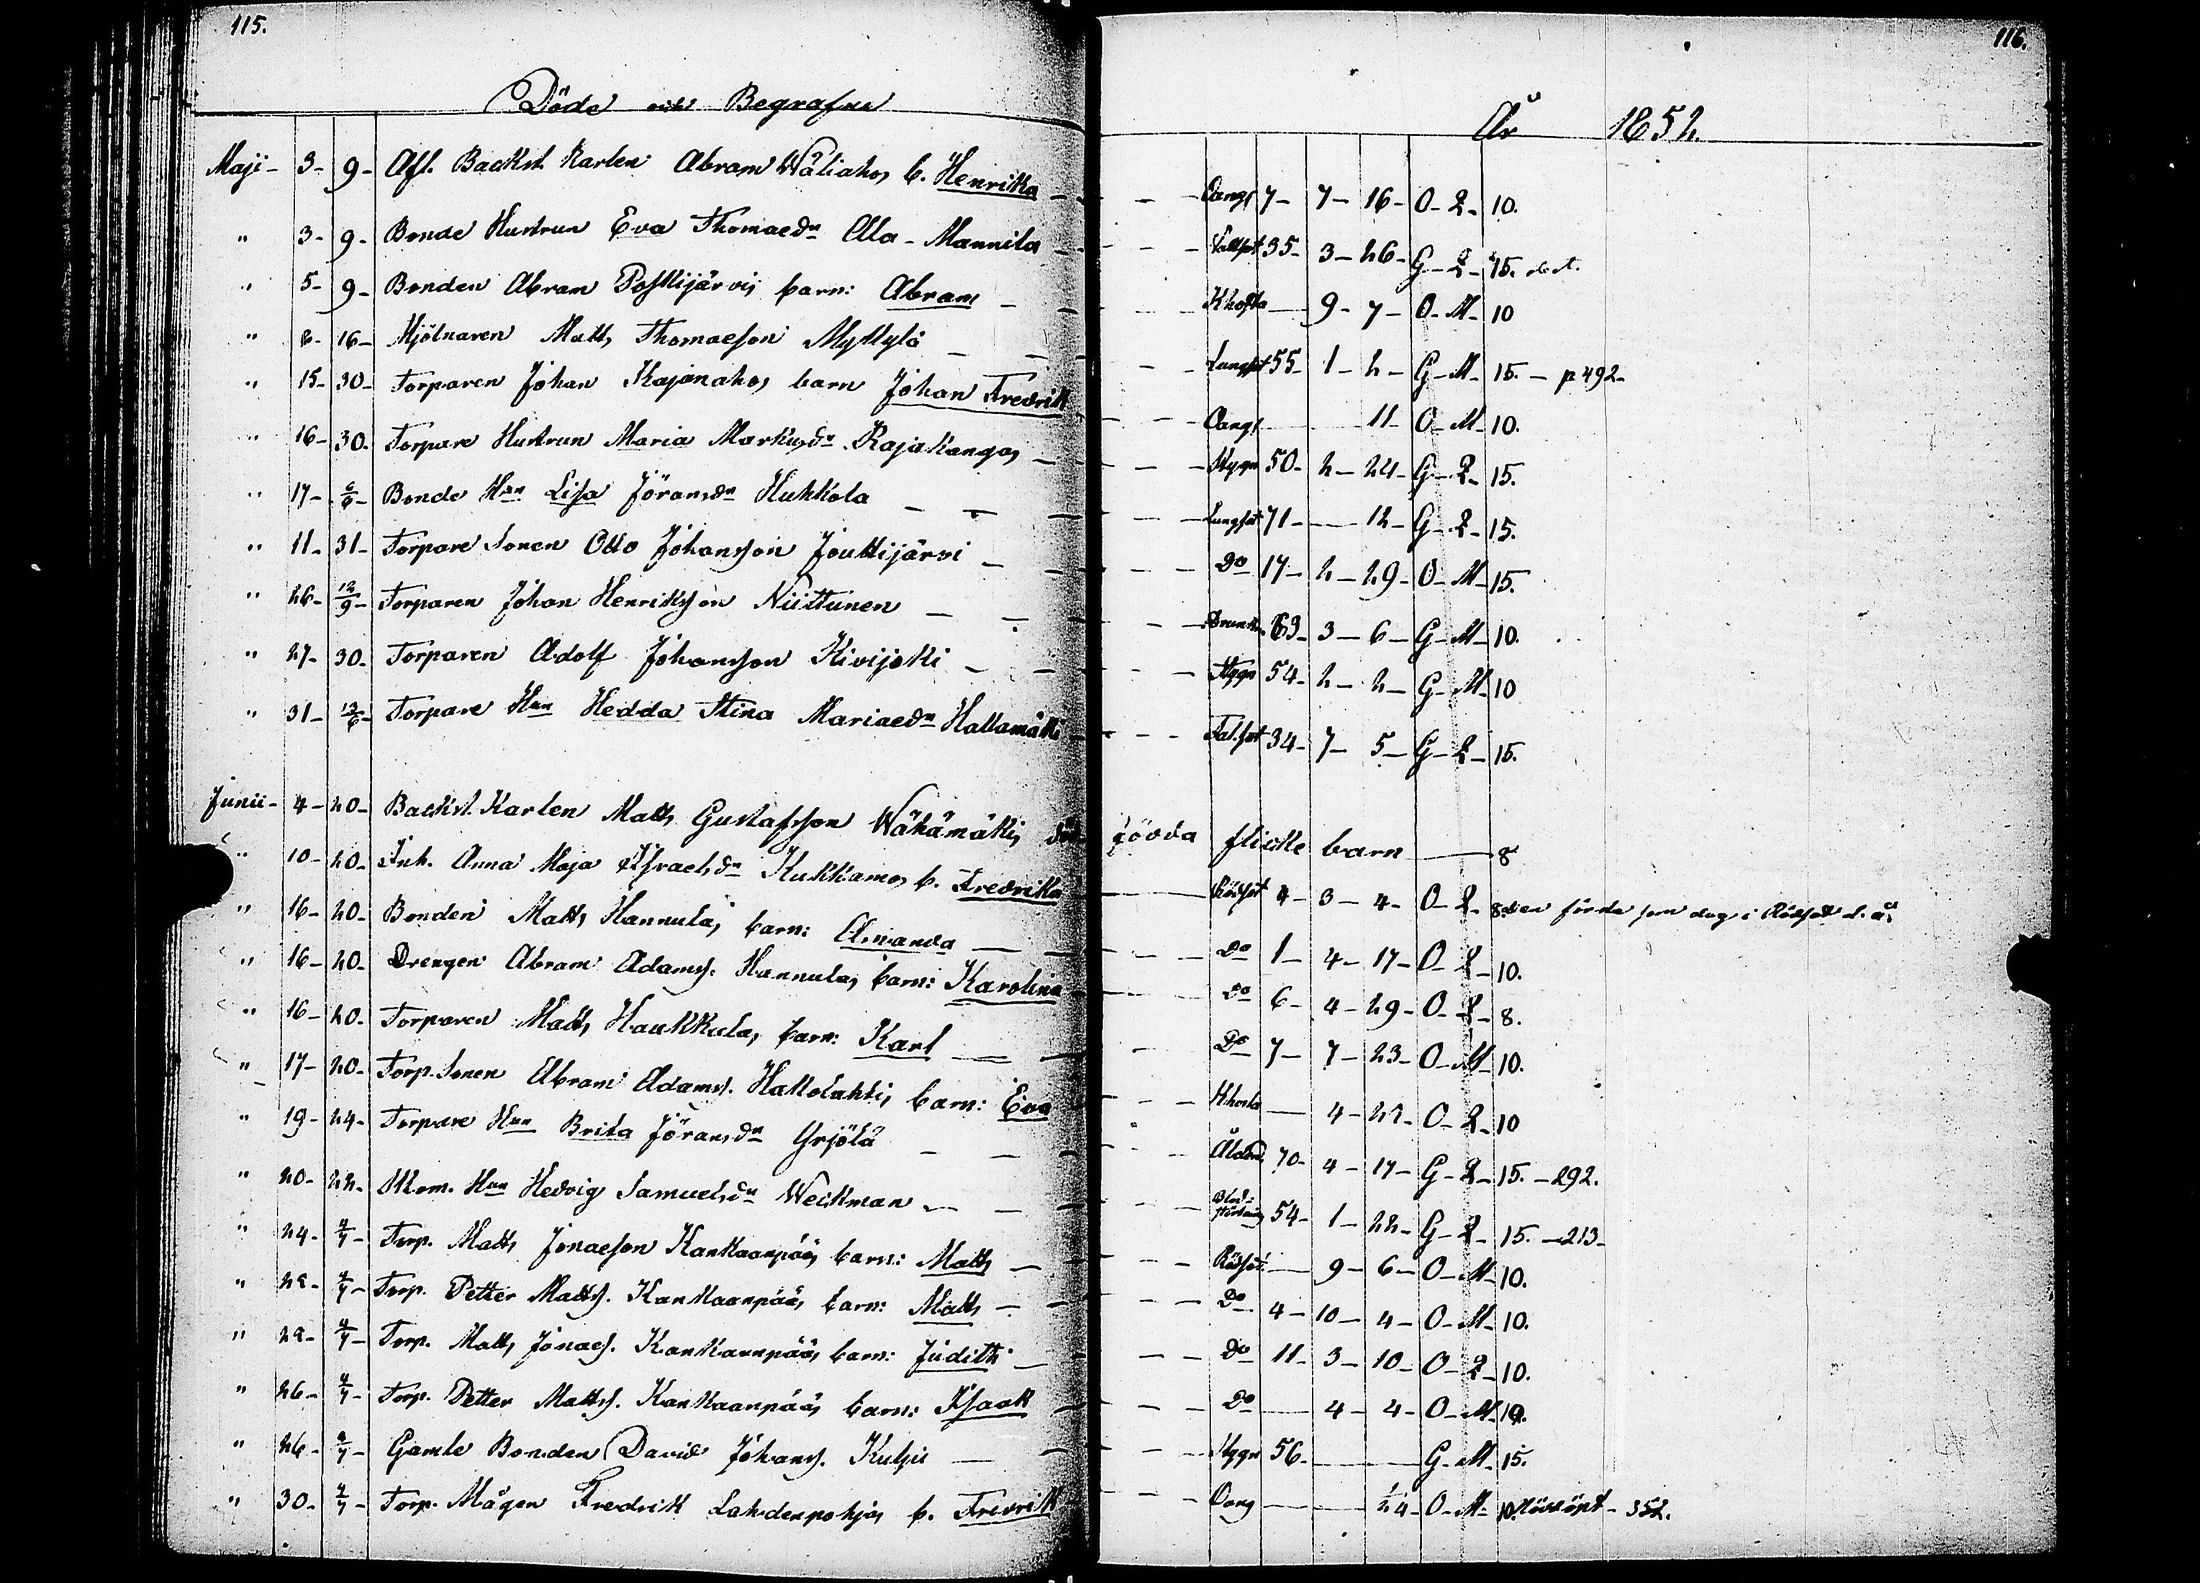 115.
Döde och Begrafne
Maji - 3 - 9 - Afl. Backst. Karlen Abram Wäliaho, b. Henrika
" 3 - 9 - Bonde Hustrun Eva Thomaedr Ala-Mannila
" 5 - 9 - Bonden Abram Poskijärvi, barn: Abram
" 8 - 16 - Mjölnaren Matts Thomaeson Myllylä
" 15 - 30 - Torparen Johan Kajanaho, barn Johan Fredrik
" 16 - 30. Torpare Hustrun Maria Markusdr Rajakangas
" 17 - 6/6 - Bonde Hun Lisa Jöransdr Huhkola
" 11 - 31 - Torpare Sonen Otto Johansson Jouttijärvi
" 26 - 12/9 - Torparen Johan Henriksson Niittunen
" 27 - 30 - Torparen Adolf Johansson Kivijoki
" 31 - 13/6 - Torpare Hun Hedda Stina Mariaedr Hallamäki
Junii - 4 - 20 - Backst. Karlen Matts Gustafsson Wähämäki, död
" 10 - 20 - Inh. Anna Maja Israelsdr Kukkamo, b. Fredrika
" 16 - 20 - Bonden Matts Hannula, barn: Amanda
" 16 - 20. Drengen Abram Adamss. Hannula, barn: Karolina
" 16 - 20. Torparen Matts Haukkula, barn: Karl
" 17 - 20 - Torp. Sonen Abram Adamss. Hallolahti, barn: Eva
" 19 - 24 - Torpare Hun Brita Jöransdr Yrjölä
" 20 - 22. Hun Hedvig Samuelsdr Weckman
" 24 - 4/7 - Torp. Matts Jonaeson Kankaanpää, barn: Matts
" 4/7 - Torp. Petter Mattss. Kankaanpää, barn: Matts
" 4/7 - Torp. Matts Jonaes. Kankaanpää, barn: Judith
" 26 - 4/7 - Torp. Petter Mattss. Kankaanpää, barn: Isaak
" 26 - 4/7 - Gamle Bonden David Johanss. Kulju
" 30 - 4/7 - Torp. Mågen Fredrik Lahdenpohja, b. Fredrik
116.
År 1852.
7 - 7 - 16 - O - Q - 10.
35 - 3 - 26 - G - Q - 15.
Khosta 9 - 7 - O - M - 10
Lungsot 55 - 1 - 2 - G - M - 15. - p 492 -
11 - O - M - 10.
50 - 2 - 24 - G - Q - 15.
Lungsot 71 - 12 - G - Q - 15.
Do 17 - 2 - 29 - O - M - 15.
63 - 3 - 6 - G - M - 10.
54 - 2 - 2 - G - M - 10
34 - 7 - 5 - G - Q - 15.
födda flicke barn 8
Rödsot 4 - 3 - 4 - O - Q - 8. den första som dog i Rödsot d. å.
Do 1 - 4 - 17 - O - Q - 10.
Do 6 - 4 - 29 - O - Q - 8.
Do 7 - 7 - 23 - O - M - 10.
Khosta 4 - O - Q - 10
Ålderd. 70 - 4 - 17 - G - Q - 15. - 292.
Blodstörtning 54 - 1 - 22 - G - Q - 15. - 213 -
Rödsot 9 - 6 - O - M - 10.
Do 4 - 10 - 4 - O - M - 10.
Do 11 - 3 - 10 - O - Q - 10.
Do 4 - 4 - O - M - 10.
56 - G - M - 15.
O - M - 10. Nödöpt - 352.